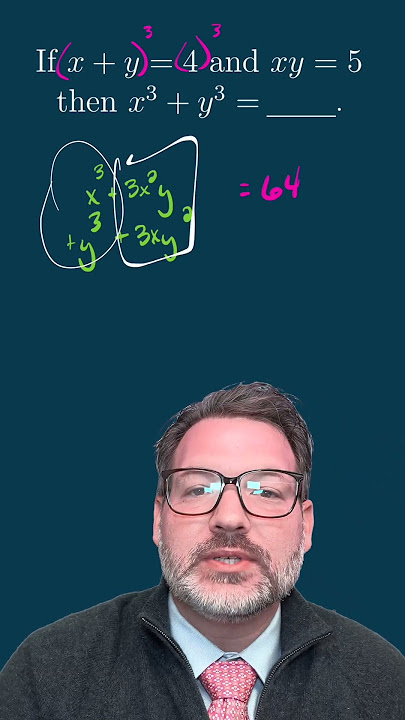 If (x + y)³ = (4)³ and xy = 5
then x³ + y³ = ____.
x³ + 3x²y = 64
+ y³ + 3xy²